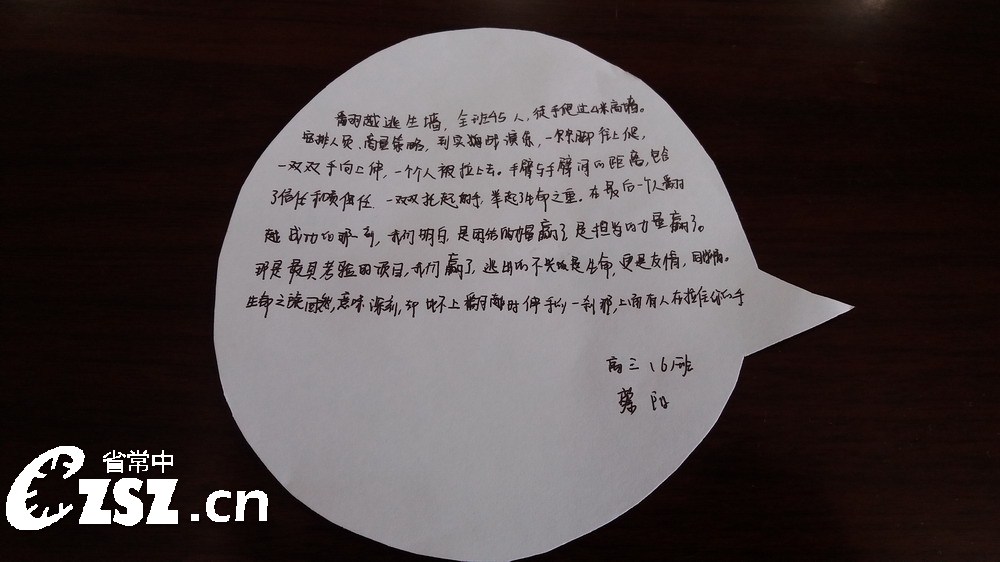 翻越逃生墙，全班45人，徒手爬过4米高墙。
安排人员、商量策略，到实际演练，一只只脚往上促，
一双双手向上伸，一个个人被拉上去。手臂与手臂间的距离，包含
了信任和责任。一双双托起的手，举起了生命之重。在最后一个人翻
越成功的那刻，我们明白，是团结的力量赢了，是担当的力量赢了。
那是最具考验的项目，我们赢了，逃出的不光是生命，更是友情，同学情。
生命之旅固然意味深刻，却比不上翻越时伸手的一刹那，上面有人在拉住你的手
高三（6）班
阳
省常中
CZSZ.cn